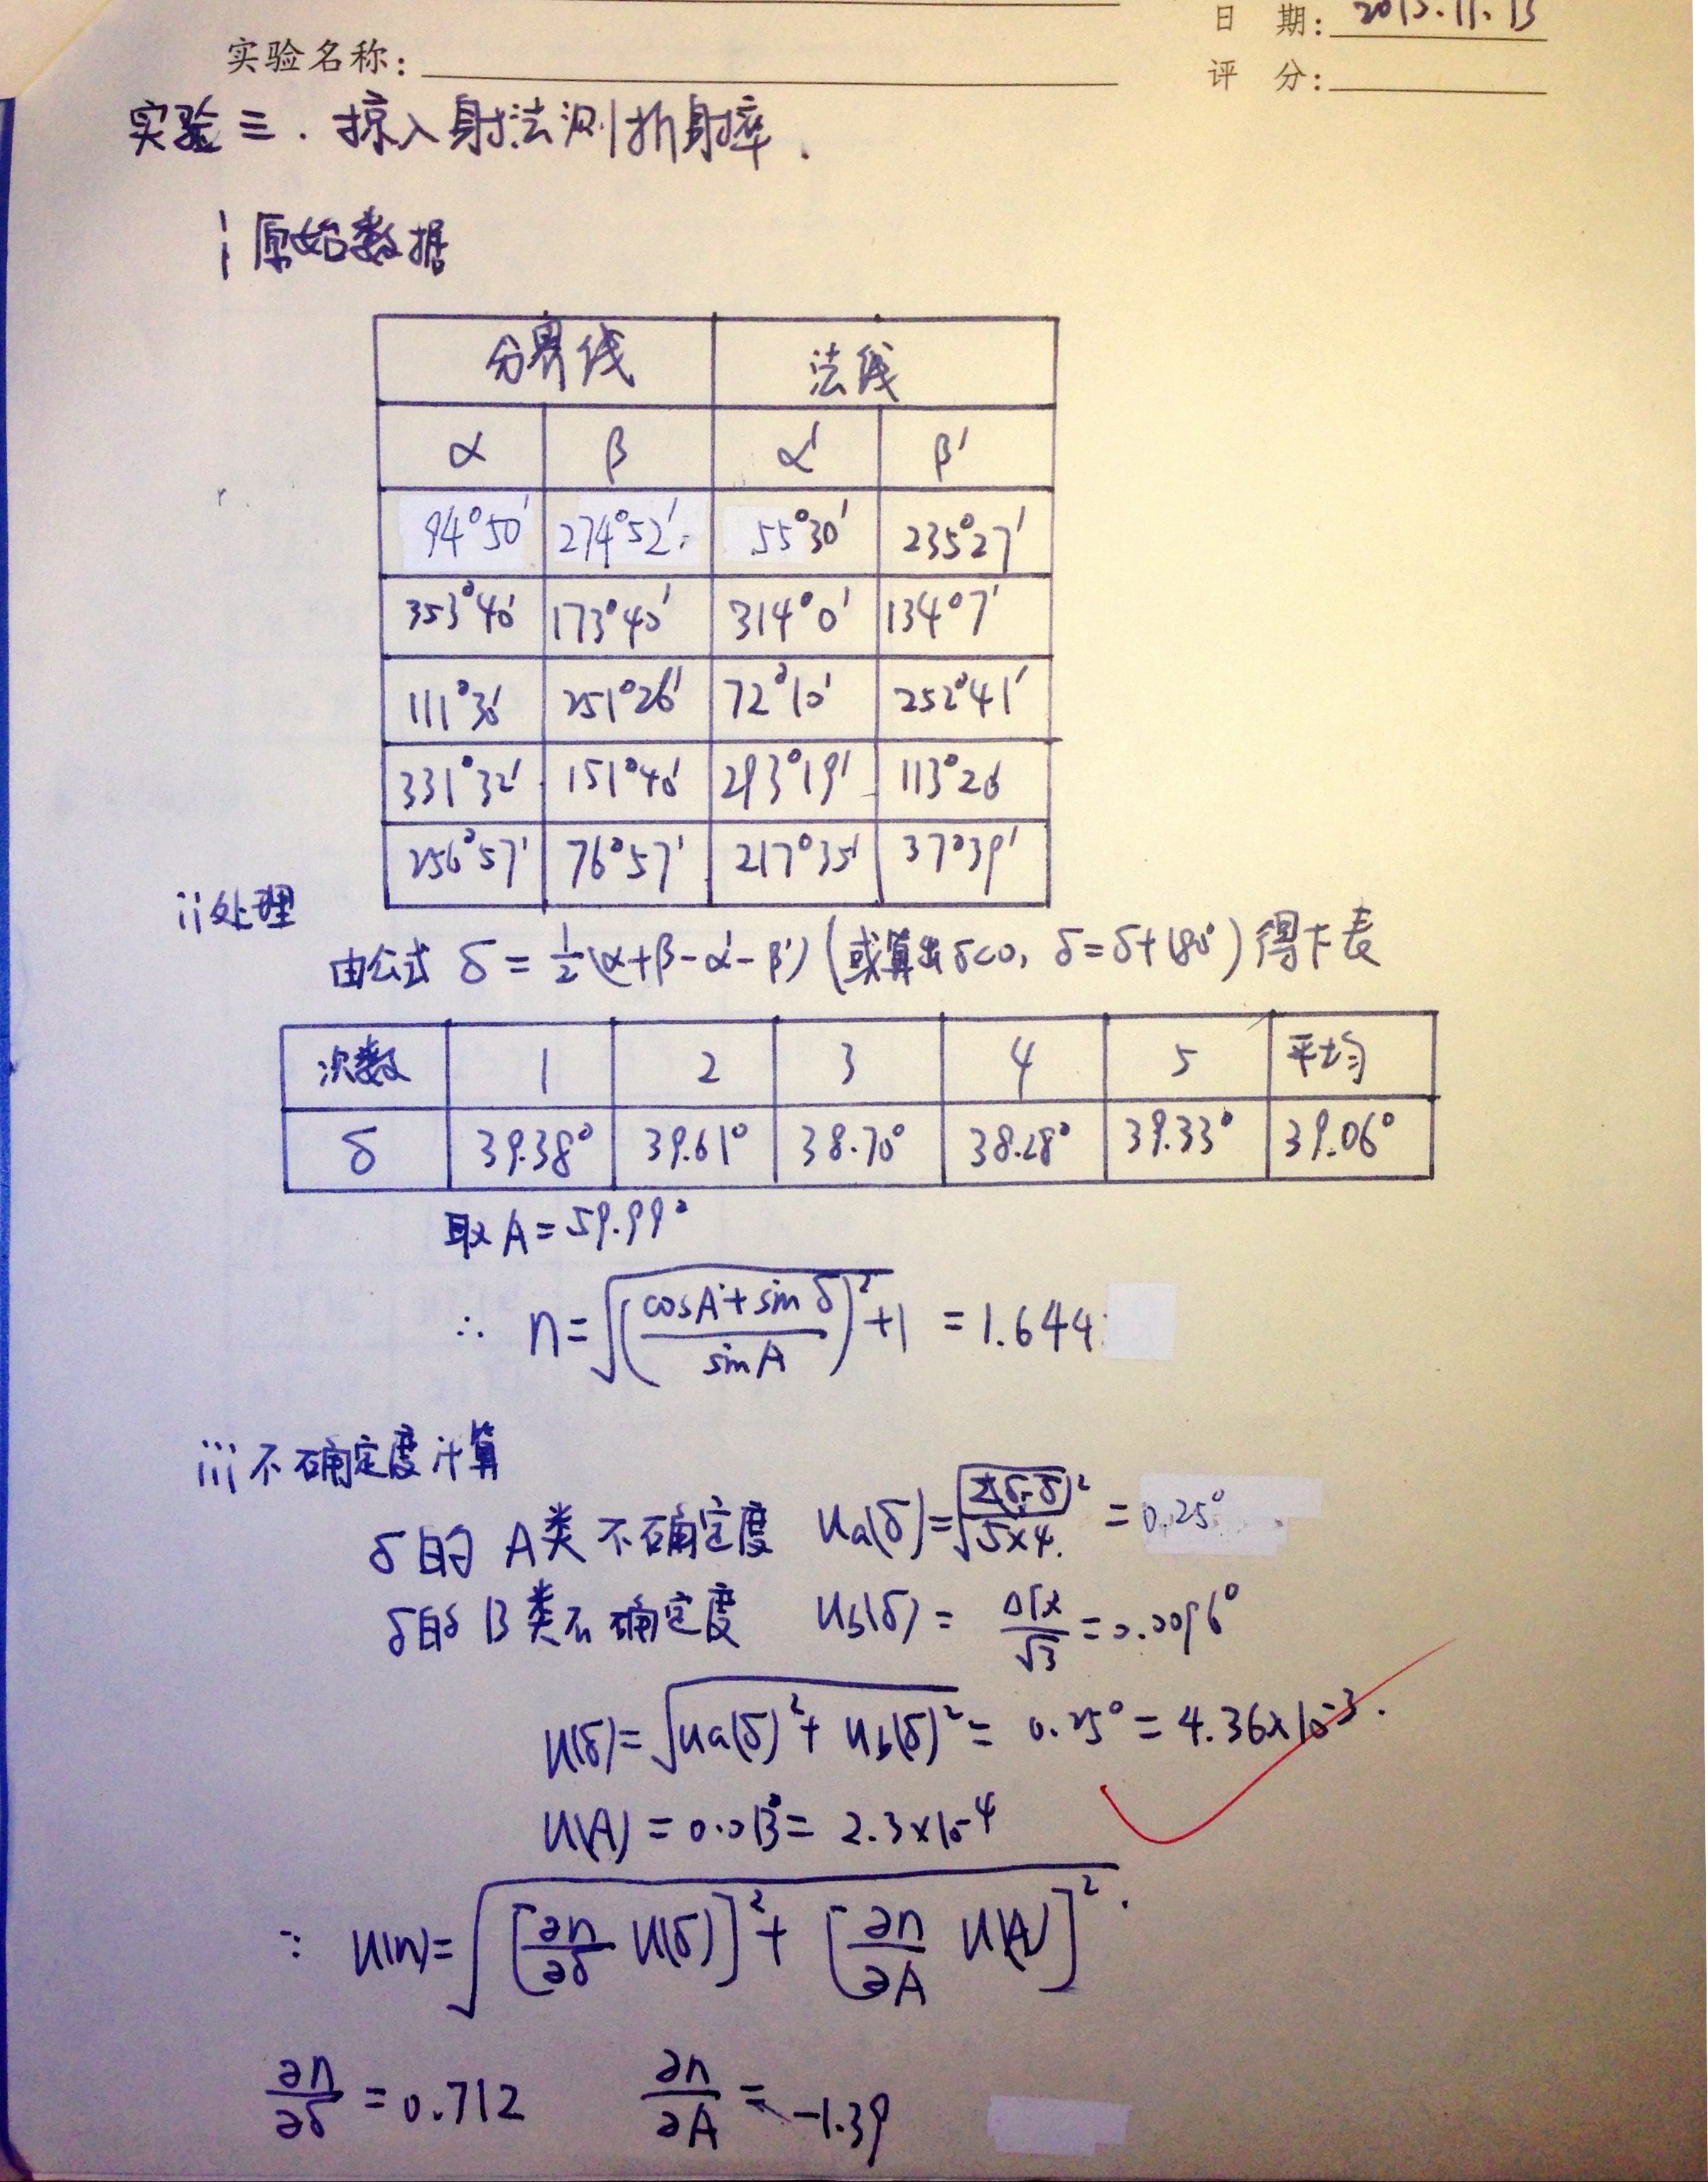 日 期: 2015.11.13
实验名称:
评 分:
实验三. 掠入射法测折射率.
i 原始数据
分界线 法线
α β α' β'
94°50' 274°52' 55°30' 235°27'
353°40' 173°40' 314°0' 134°7'
111°30' 251°26' 72°10' 252°41'
331°32' 151°40' 293°19' 113°20
256°57' 76°57' 217°35' 37°39'
ii 处理
由公式 δ = 1/2(α+β-α'-β') (或算出δ<0, δ=δ+180°) 得下表
次数 1 2 3 4 5 平均
δ 39.38° 39.61° 38.70° 38.28° 39.33° 39.06°
取 A = 59.99°
∴ n = √((cosA + sinδ)/sinA)²+1 = 1.644
iii 不确定度计算
δ的 A类不确定度 Ua(δ) = √Σ(δi-δ)²/5×4 = 0.25°
δ的 B类不确定度 Ub(δ) = /√3 = 0.0096°
U(δ) = √Ua(δ)² + Ub(δ)² = 0.25° = 4.36×10-3.
U(A) = 0.013° = 2.3×10-4
∵ U(n) = √[∂n/∂δ U(δ)]² + [∂n/∂A U(A)]².
∂n/∂δ = 0.712 ∂n/∂A = -1.39